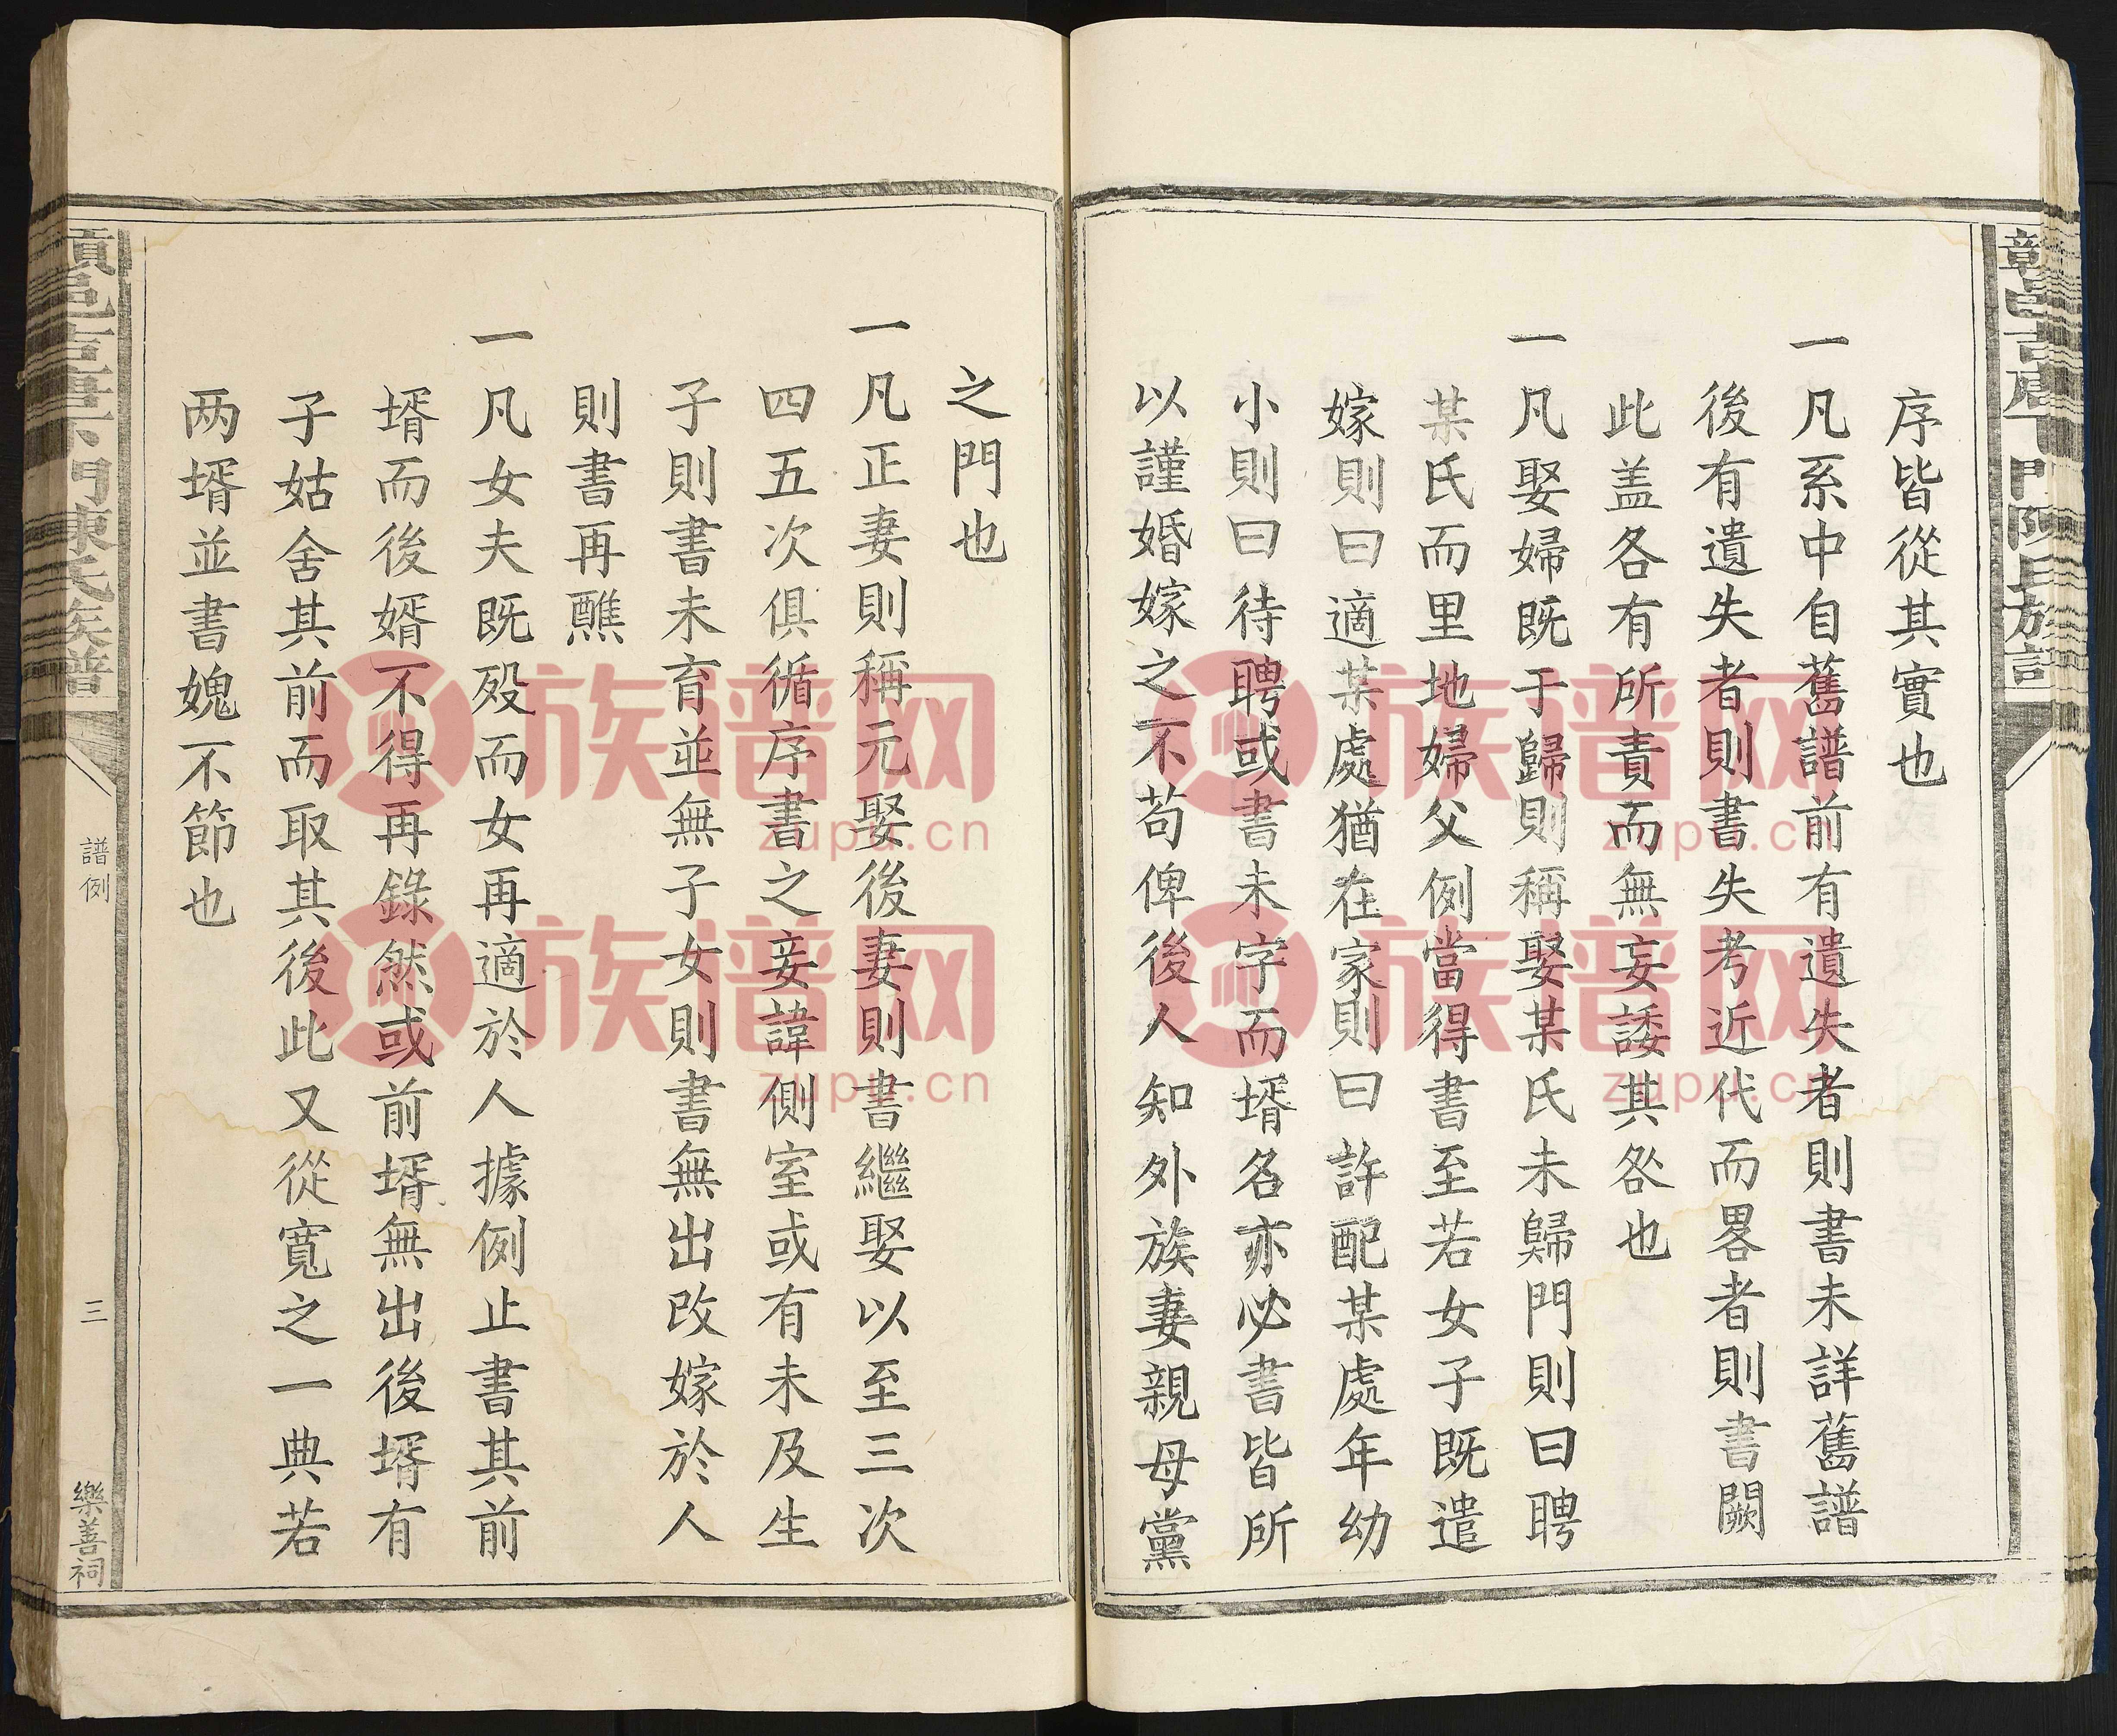 序皆從其實也
一凡系中自舊譜前有遺失者則書未詳舊譜
後有遺失者則書失考近代而畧者則書闕
此盖各有所責而無妄諉其咎也
一凡娶婦既于歸則稱娶某氏未歸門則曰聘
某氏而里地婦父例當得書至若女子既遣
嫁則曰適某處猶在家則曰許配某處年幼
小則曰待聘或書未字而壻名亦必書皆所
以謹婚嫁之不苟俾後人知外族妻親母黨
之門也
一凡正妻則稱元娶後妻則書繼娶以至三次
四五次俱循序書之妾諱側室或有未及生
子則書未育並無子女則書無出改嫁於人
則書再醮
一凡女夫既殁而女再適於人據例止書其前
壻而後婿不得再錄然或前壻無出後壻有
子姑舍其前而取其後此又從寬之一典若
两壻並書媿不節也
譜例
三
樂善祠
族谱网
zupu.cn
族谱网
zupu.cn
族谱网
zupu.cn
族谱网
zupu.cn